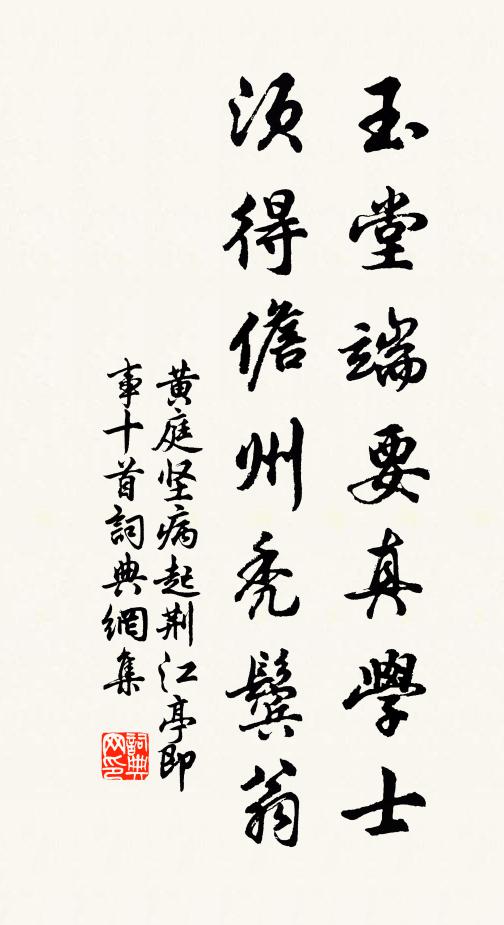 玉堂端要真學士
須得儋州禿鬢翁
黃庭坚病起荆江亭即
事十首詞典網集
詞典
网印